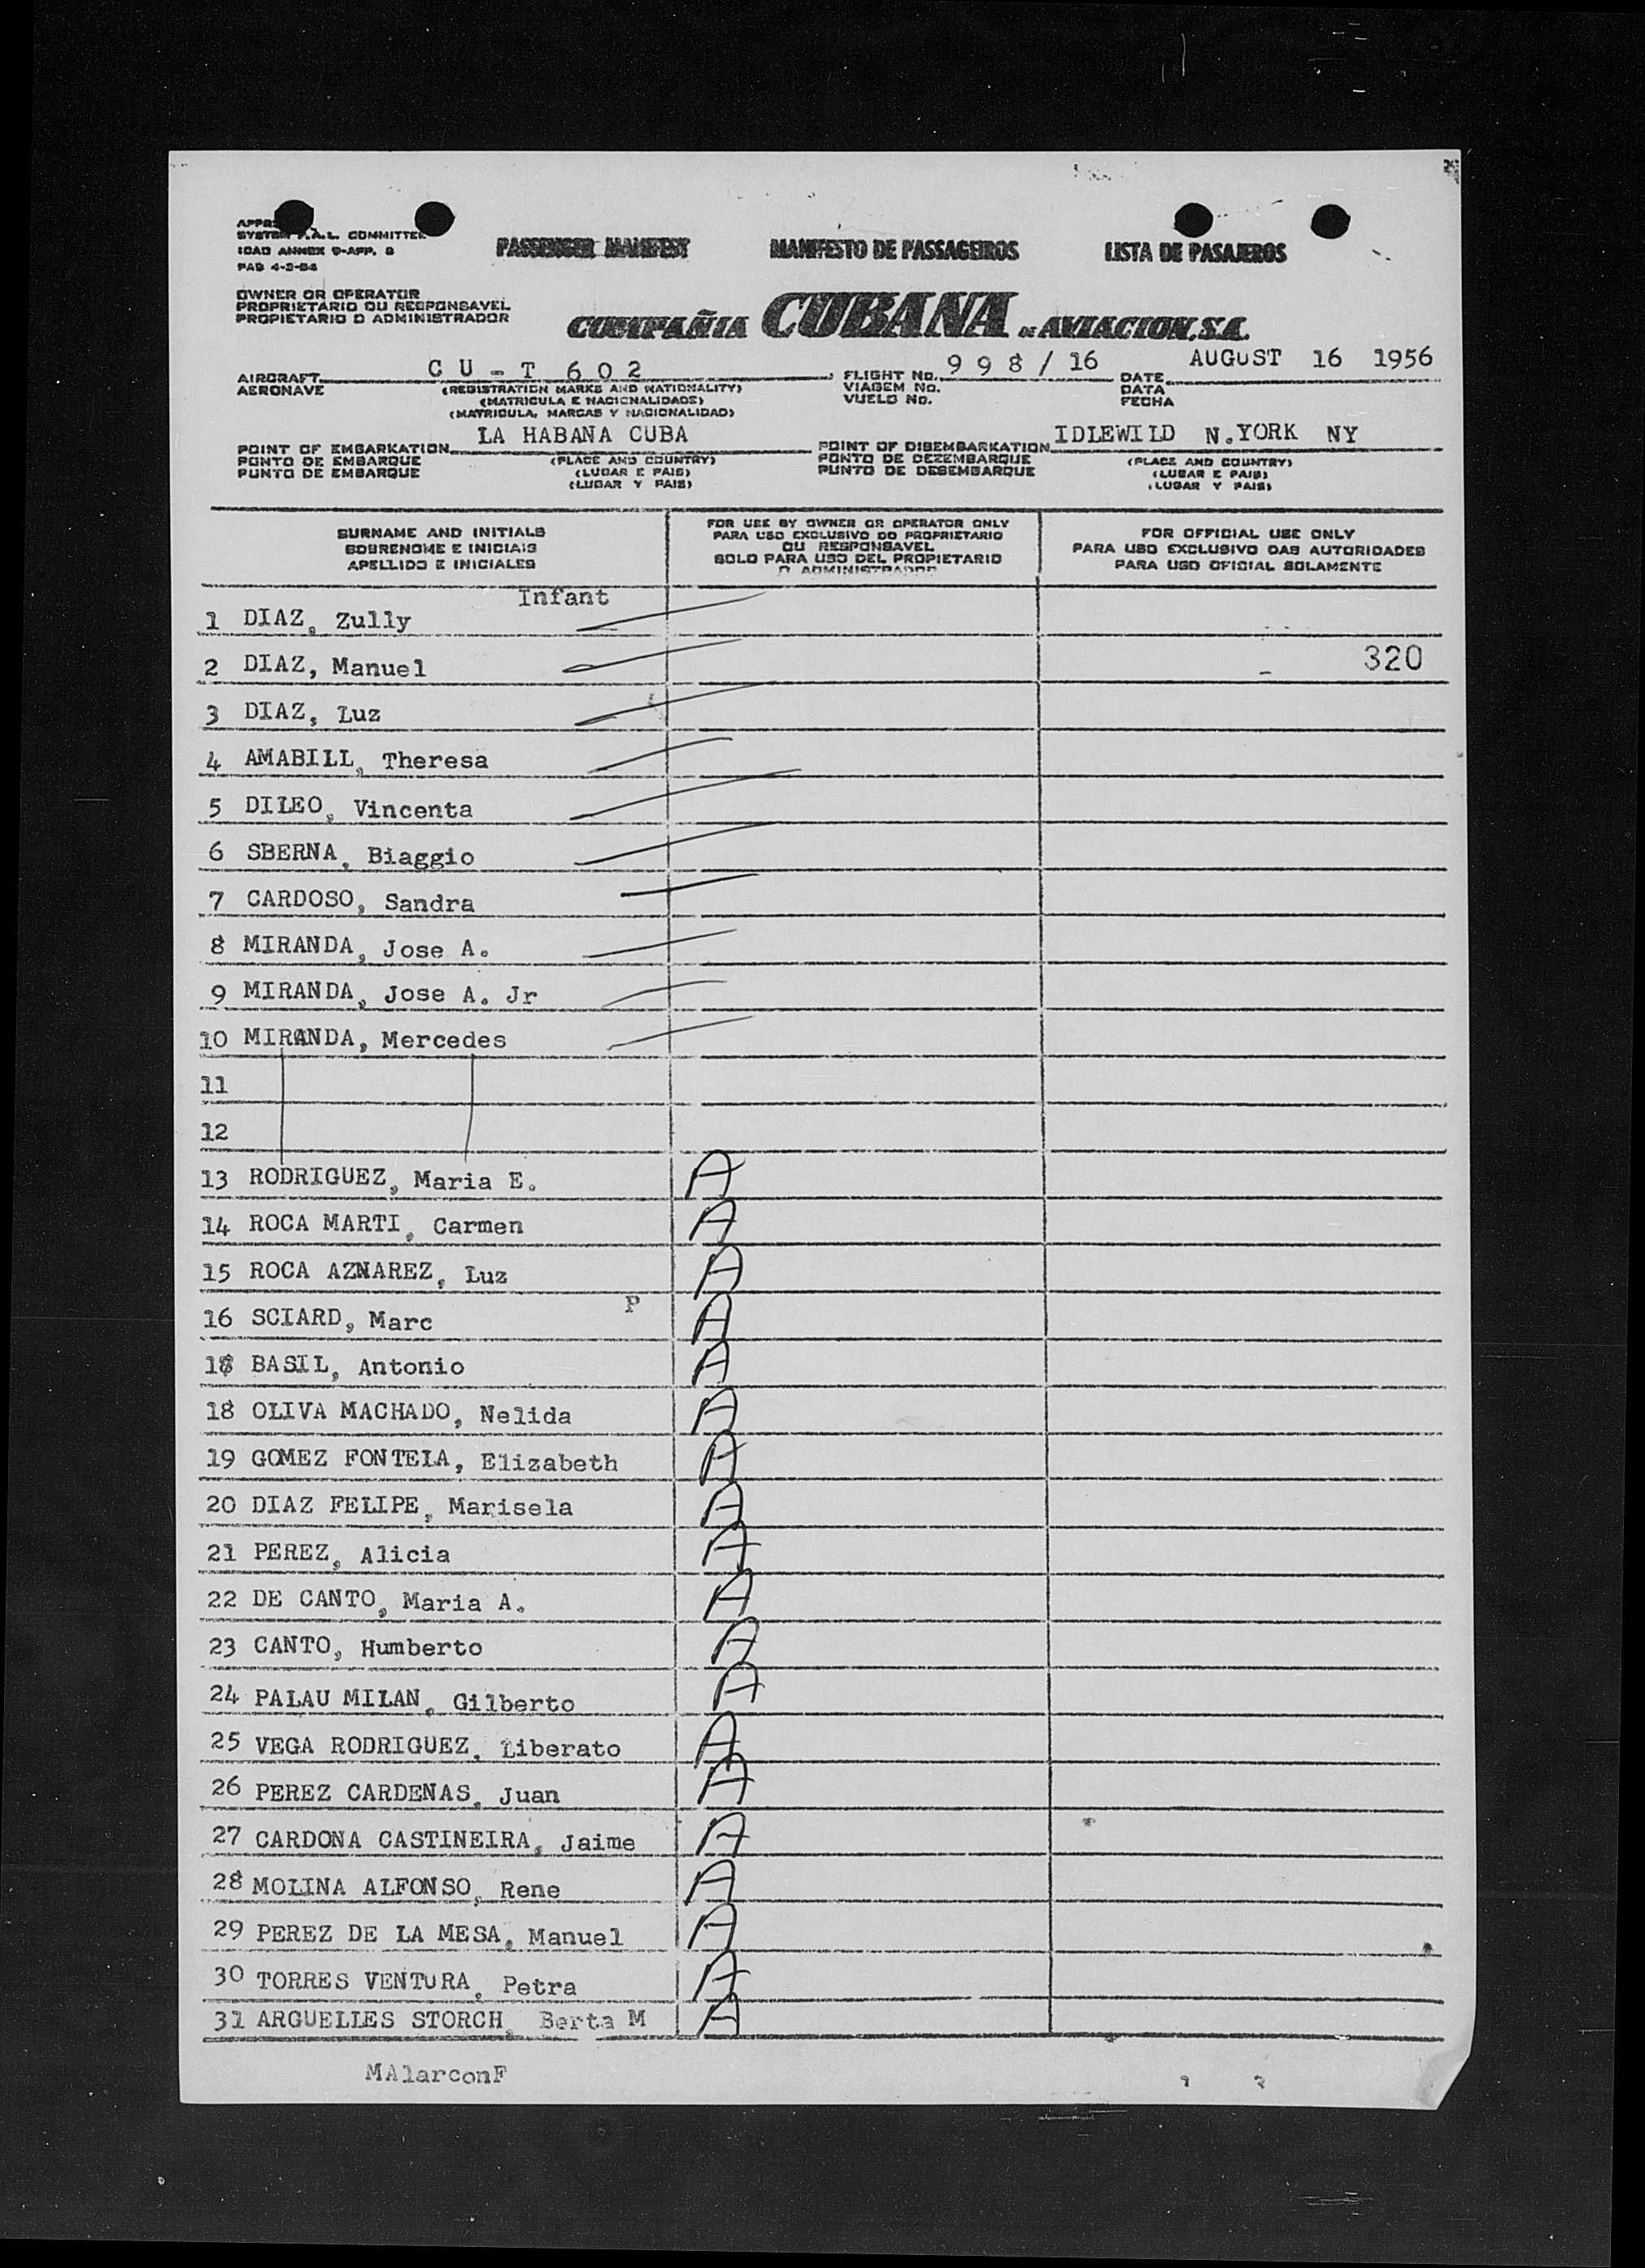 SYSTEM F.A.L. COMMITTEE
ICAO ANNEX 9-APP. 8
PAS 4-2-54
PASSENGER MANIFEST MANIFESTO DE PASSAGEIROS LISTA DE PASAJEROS
OWNER OR OPERATOR
PROPRIETARIO OU RESPONSAVEL
PROPIETARIO O ADMINISTRADOR
COMPAÑIA CUBANA DE AVIACION, S.A.
AIRCRAFT CU-T 602 FLIGHT No. 998/16 DATE AUGUST 16 1956
AERONAVE (REGISTRATION MARKS AND NATIONALITY) VIAGEM No. DATA
(MATRICULA E NACIONALIDADE) VUELO No. FECHA
(MATRICULA, MARCAS Y NACIONALIDAD)
POINT OF EMBARKATION LA HABANA CUBA POINT OF DISEMBARKATION IDLEWILD N.YORK NY
PONTO DE EMBARQUE (PLACE AND COUNTRY) PONTO DE DEZEMBARQUE (PLACE AND COUNTRY)
PUNTO DE EMBARQUE (LUGAR E PAIS) PUNTO DE DESEMBARQUE (LUGAR E PAIS)
(LUGAR Y PAIS) (LUGAR Y PAIS)
SURNAME AND INITIALS
SOBRENOME E INICIAIS
APELLIDO E INICIALES
FOR USE BY OWNER OR OPERATOR ONLY
PARA USO EXCLUSIVO DO PROPRIETARIO
OU RESPONSAVEL
SOLO PARA USO DEL PROPIETARIO
O ADMINISTRADOR
FOR OFFICIAL USE ONLY
PARA USO EXCLUSIVO DAS AUTORIDADES
PARA USO OFICIAL SOLAMENTE
Infant
1 DIAZ, Zully
2 DIAZ, Manuel 320
3 DIAZ, Luz
4 AMABILL, Theresa
5 DILEO, Vincenta
6 SBERNA, Biaggio
7 CARDOSO, Sandra
8 MIRANDA, Jose A.
9 MIRANDA, Jose A. Jr
10 MIRANDA, Mercedes
11
12
13 RODRIGUEZ, Maria E. A
14 ROCA MARTI, Carmen A
15 ROCA AZNAREZ, Luz A
16 SCIARD, Marc P A
18 BASIL, Antonio A
18 OLIVA MACHADO, Nelida A
19 GOMEZ FONTELA, Elizabeth A
20 DIAZ FELIPE, Marisela A
21 PEREZ, Alicia A
22 DE CANTO, Maria A. A
23 CANTO, Humberto A
24 PALAU MILAN, Gilberto A
25 VEGA RODRIGUEZ, Liberato A
26 PEREZ CARDENAS, Juan A
27 CARDONA CASTINEIRA, Jaime A
28 MOLINA ALFONSO, Rene A
29 PEREZ DE LA MESA, Manuel A
30 TORRES VENTURA, Petra A
31 ARGUELLES STORCH, Berta M A
MAlarconF